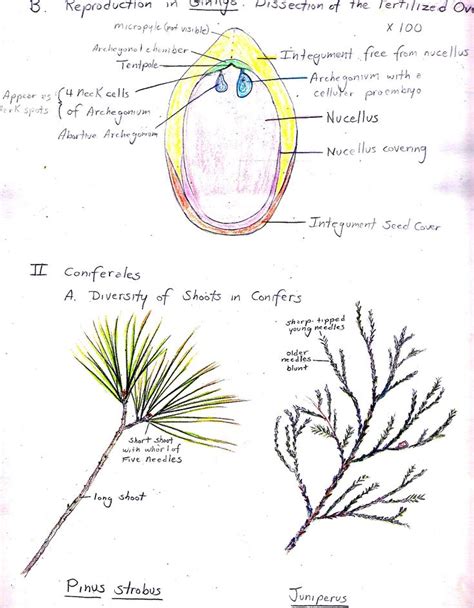 B. Reproduction in Ginkgo: Dissection of the Fertilized Ov
X 100
micropyle (not visible)
Archegonal chamber
Tentpole
Integument free from nucellus
Archegonium with a
cellular proembryo
Appear as
spots
4 neck cells
of Archegonium
Abortive Archegonium
Nucellus
Nucellus covering
Integument Seed Cover
II Coniferales
A. Diversity of Shoots in Conifers
sharp-tipped
young needles
older
needles
blunt
short shoot
with whorl of
five needles
long shoot
Pinus strobus
Juniperus